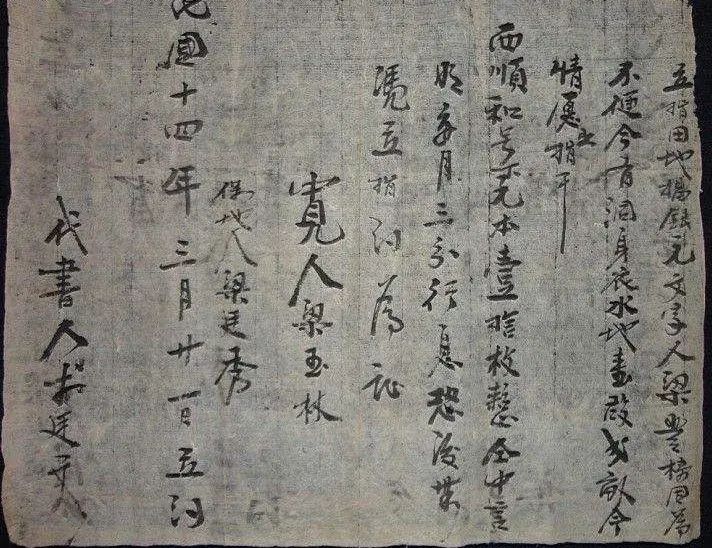 立指田地揭銀元文字人梁豐橋因為
不便今有洞身底水地壹段 畝今
情愿 指干
西順和号 元本壹拾枚整仝中言
明每月三分行息恐後無
憑立指約為証
寬人梁玉林
保地人梁廷秀
民國十四年三月廿一日立約
代書人 廷